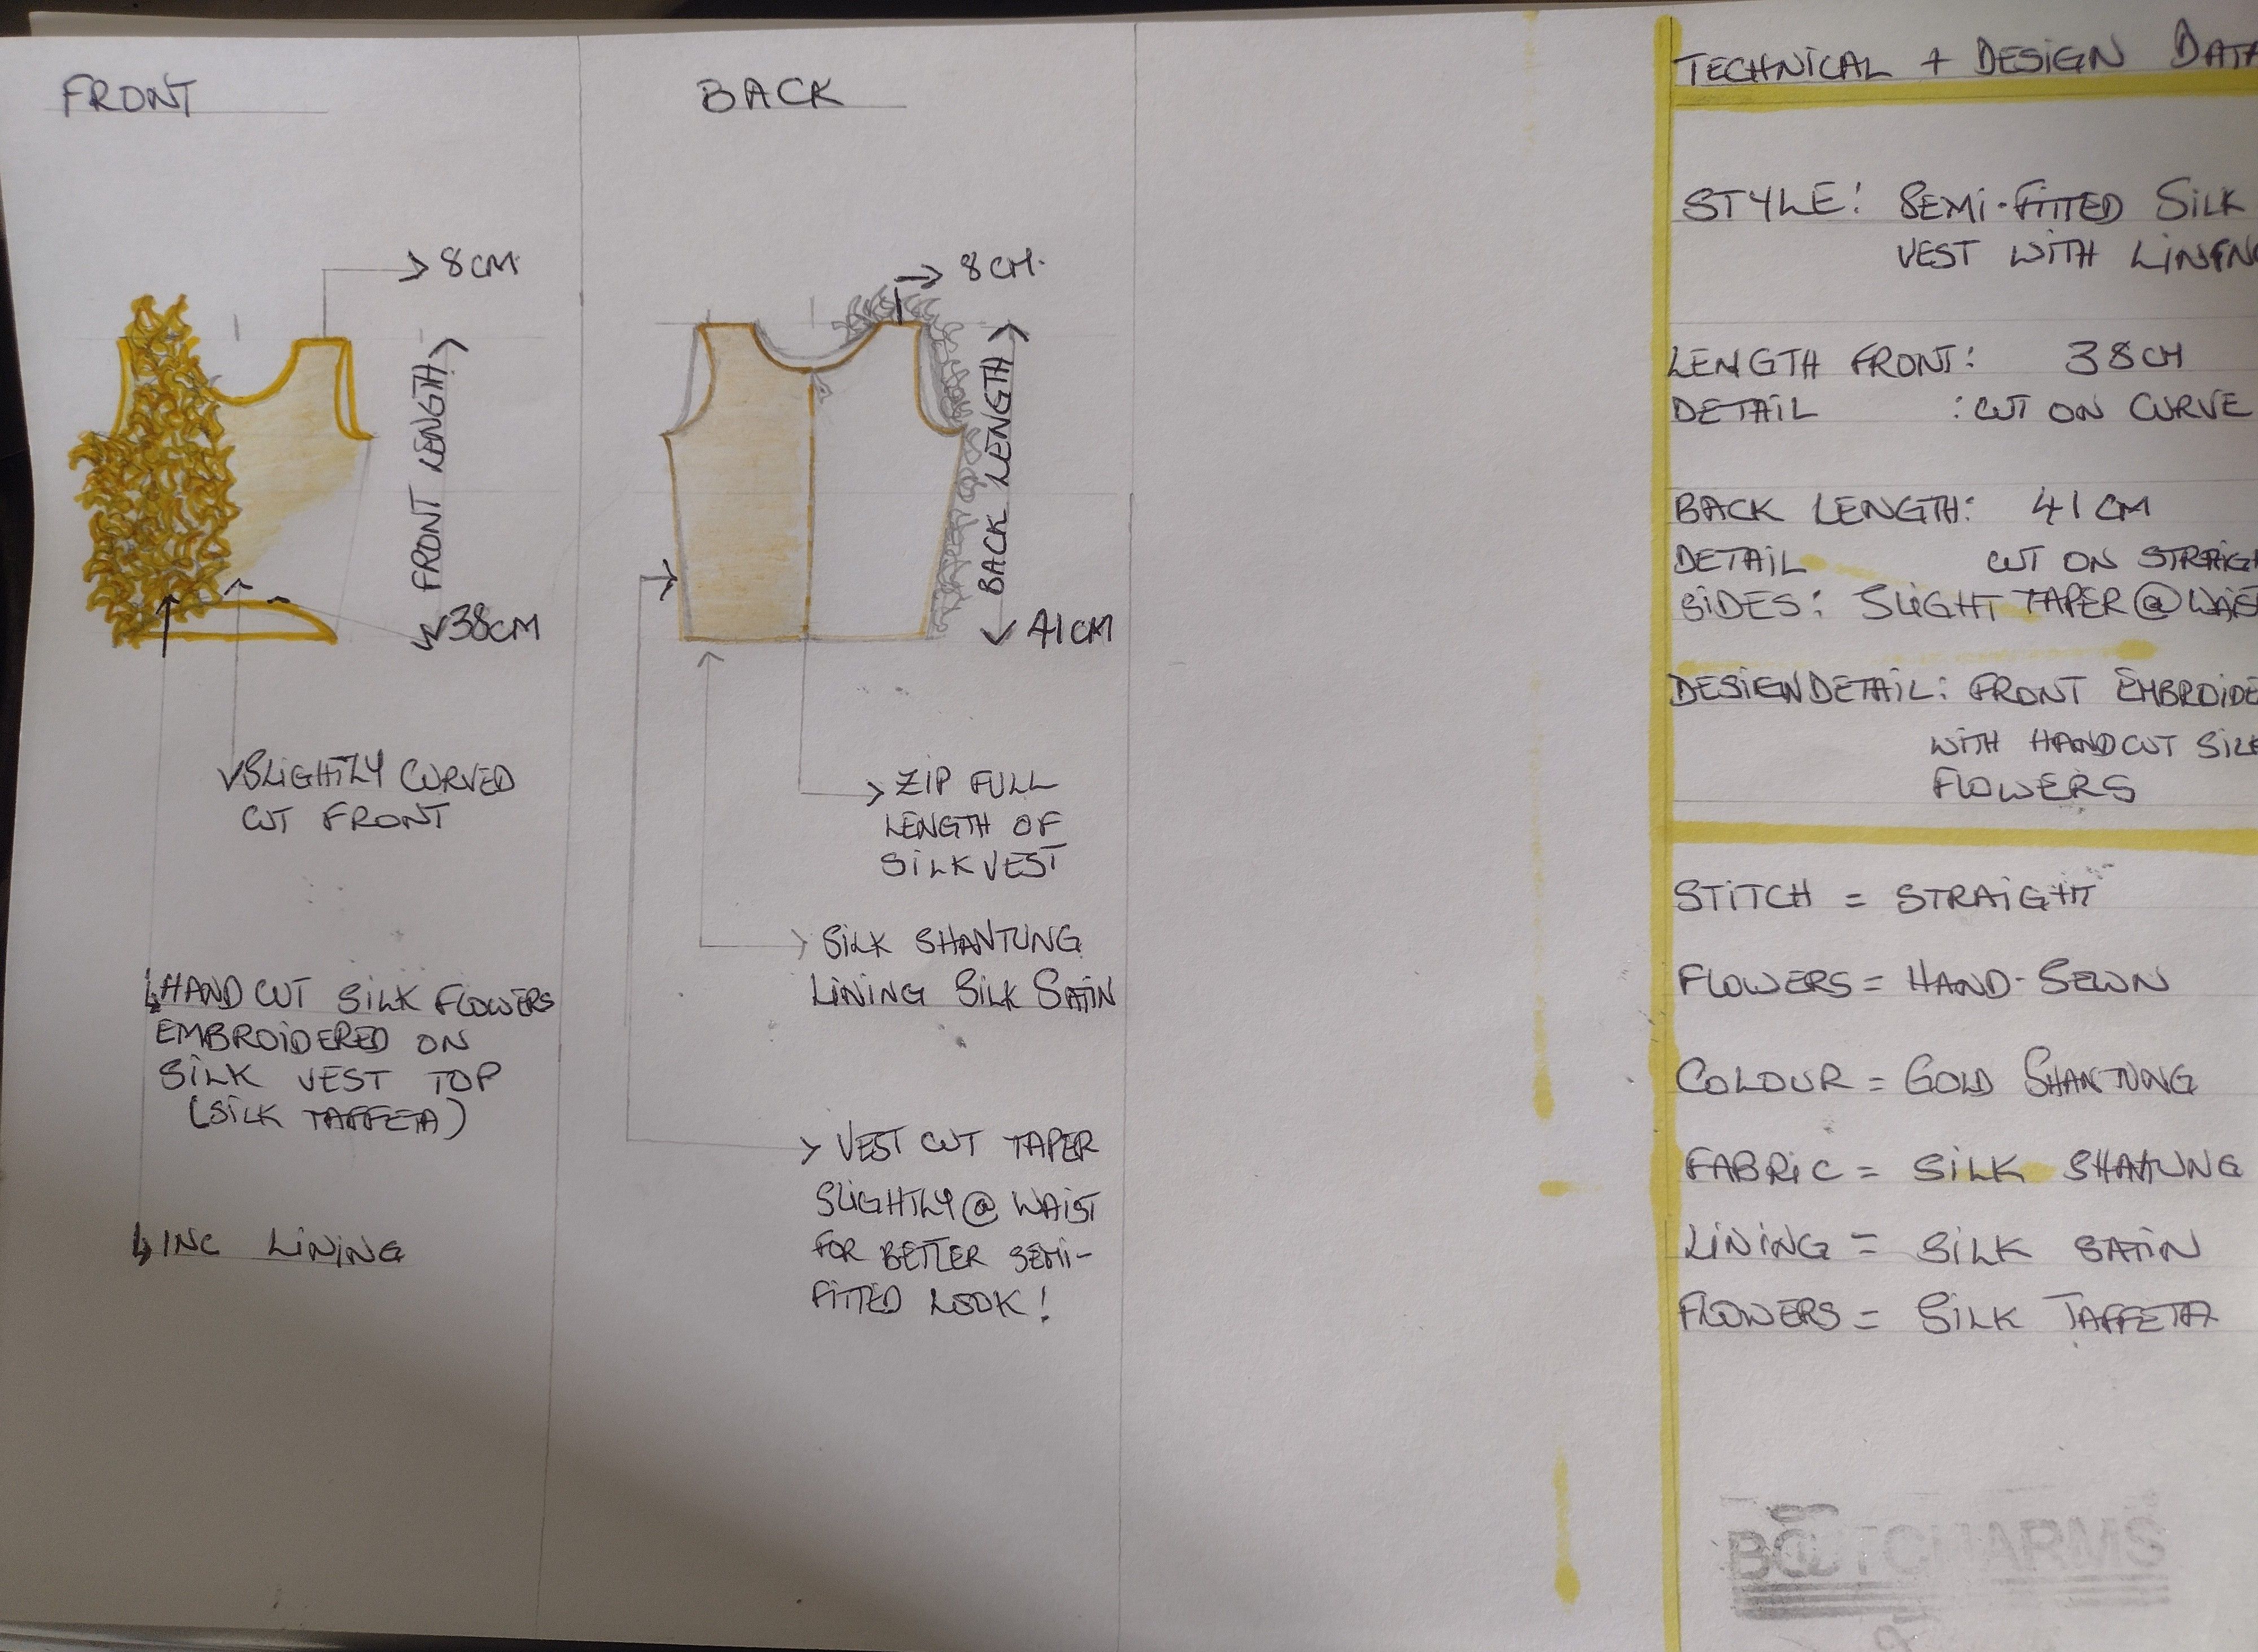 FRONT
8CM.
FRONT LENGTH
38CM
SLIGHTLY CURVED
CUT FRONT
HANDCUT SILK FLOWERS
EMBROIDERED ON
SILK VEST TOP
(SILK TAFFETA)
INC LINING
BACK
8CM.
BACK LENGTH
41CM
ZIP FULL
LENGTH OF
SILK VEST
SILK SHANTUNG
LINING SILK SATIN
VEST CUT TAPER
SLIGHTLY @ WAIST
FOR BETTER SEMI-
FITTED LOOK!
TECHNICAL + DESIGN DATA
STYLE: SEMI-FITTED SILK
VEST WITH LINING
LENGTH FRONT: 38CM
DETAIL : CUT ON CURVE
BACK LENGTH: 41CM
DETAIL CUT ON STRAIGH
SIDES: SLIGHT TAPER @ WAIS
DESIGN DETAIL: FRONT EMBROIDE
WITH HANDCUT SILK
FLOWERS
STITCH = STRAIGHT
FLOWERS = HAND-SEWN
COLOUR = GOLD SHANTUNG
FABRIC = SILK SHATUNG
LINING = SILK SATIN
FLOWERS = SILK TAFFETA